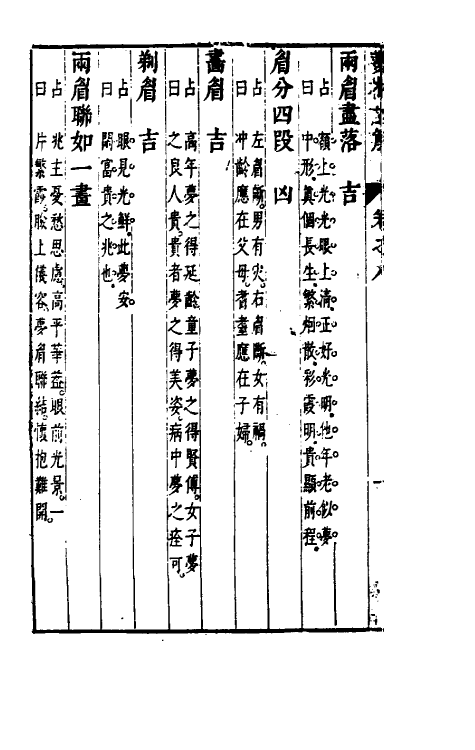 夢林玄解 卷之八
兩眉盡落 吉
占 額上光光眼上清。正好光明。他年老似夢
曰 中形。真個長生。繁烟散。彩霞明。貴顯前程。
眉分四段 凶
占 左眉斷。男有災。右眉斷。女有禍。
曰 冲齡應在父母。耆耋應在子婦。
畫眉 吉
占 高年夢之得延齡。童子夢之得賢傅。女子夢
曰 之良人貴。貴者夢之得美姿。病中夢之痊可。
剃眉 吉
占 眼見光鮮。此夢安
曰 閑富貴之兆也。
兩眉聯如一畫
占 兆主憂愁思慮。高平華蓋。眼前光景。一
曰 片繁霞。臉上儀容。夢眉聯結。懷抱難開。